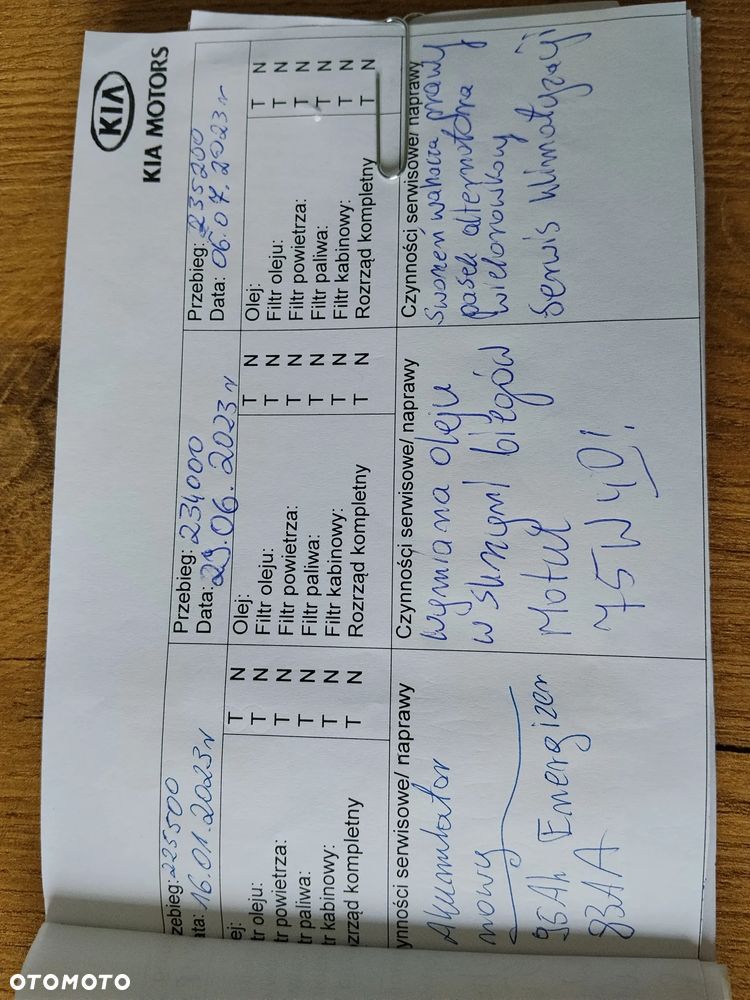 KIA
KIA MOTORS
zebieg: 225500
ata: 16.01.2023r
ej: T N
tr oleju: T N
tr powietrza: T N
tr paliwa: T N
tr kabinowy: T N
zrząd kompletny T N
ynności serwisowe/ naprawy
Akumulator
nowy
95Ah Energizer
Przebieg: 234000
Data: 29.06.2023r
Olej: T N
Filtr oleju: T N
Filtr powietrza: T N
Filtr paliwa: T N
Filtr kabinowy: T N
Rozrząd kompletny T N
Czynności serwisowe/ naprawy
Wymiana oleju
w skrzyni biegów
Motul
75W40!
Przebieg: 235200
Data: 06.07.2023r
Olej: T N
Filtr oleju: T N
Filtr powietrza: T N
Filtr paliwa: T N
Filtr kabinowy: T N
Rozrząd kompletny T N
Czynności serwisowe/ naprawy
Sworzeń wahacza prawy
pasek alternatora
wielorowkowy
Serwis klimatyzacji
OTOMOTO